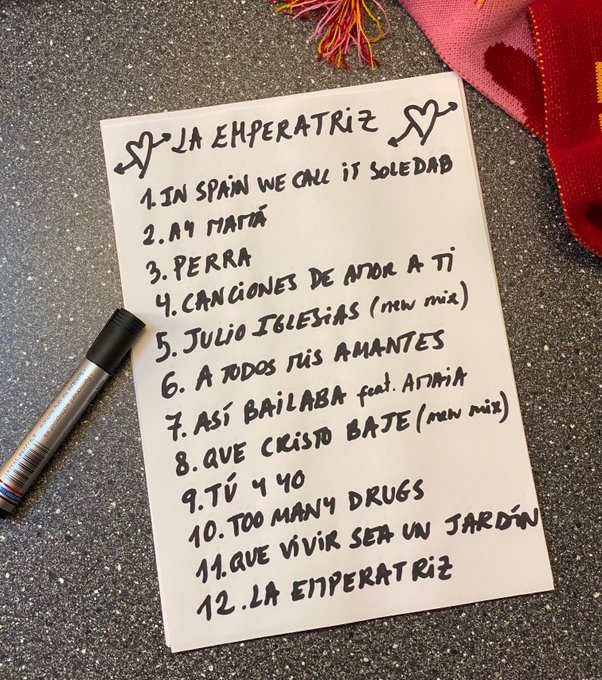 LA EMPERATRIZ
1. IN SPAIN WE CALL IT SOLEDAD
2. AY MAMÁ
3. PERRA
4. CANCIONES DE AMOR A TI
5. JULIO IGLESIAS (new mix)
6. A TODOS MIS AMANTES
7. ASÍ BAILABA feat. AMAIA
8. QUE CRISTO BAJE (new mix)
9. TÚ Y YO
10. TOO MANY DRUGS
11. QUE VIVIR SEA UN JARDÍN
12. LA EMPERATRIZ